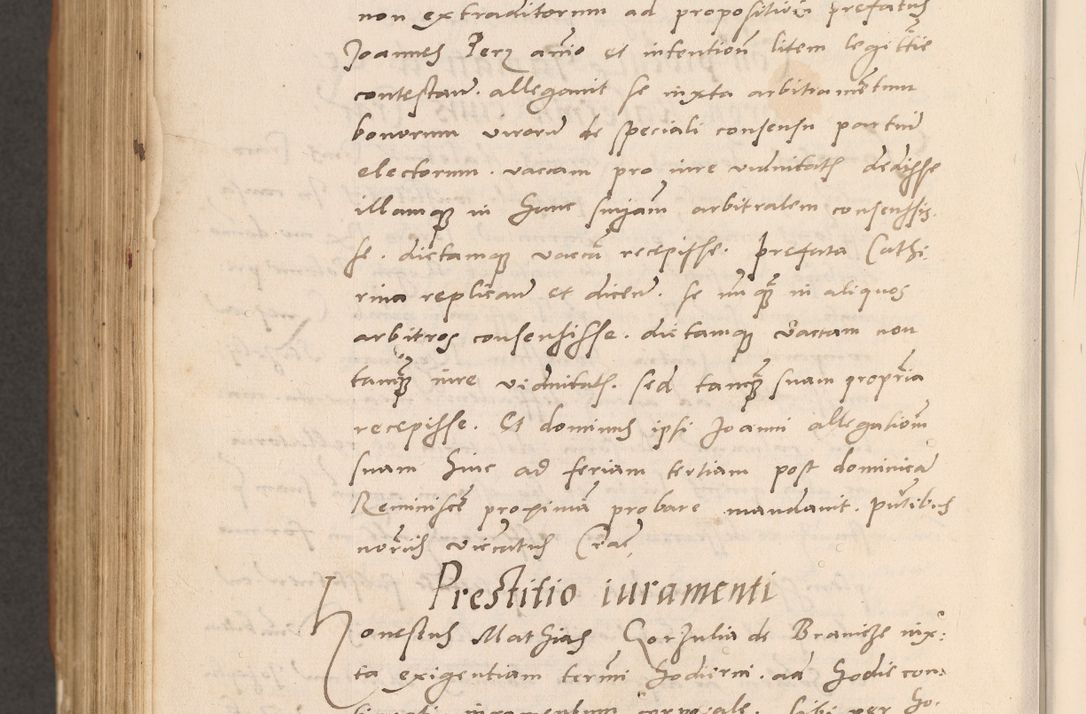 non extraditorum ad propositionem prefatus
Joannes Perz animo et intentione litem legittime
contestan. allegavit se iuxta arbitramentum
bonorum virorum de speciali consensu partium
electorum. vaccam pro iure viduitatis dedisse
illamque in hanc suam arbitralem consensis.
se. dictamque vaccam recepisse. prefata Cathe
rina replicans et dicens. se nunquam in aliquos
arbitros consensisse. dictamque vaccam non
tanquam iure viduitatis. sed tanquam suam propriam
recepisse. Et dominus ipsi Joanni allegationem
suam hinc ad feriam tertiam post dominicam
Reminiscere proximam probare mandavit. presentibus
notariis vicecatus Crac
Prestitio iuramenti
Honestus Mathias Gorzulia de Branicze iux:
ta exigentiam termini hodierni. ad hodie con:
iuramentum corporale. sibi per ho.